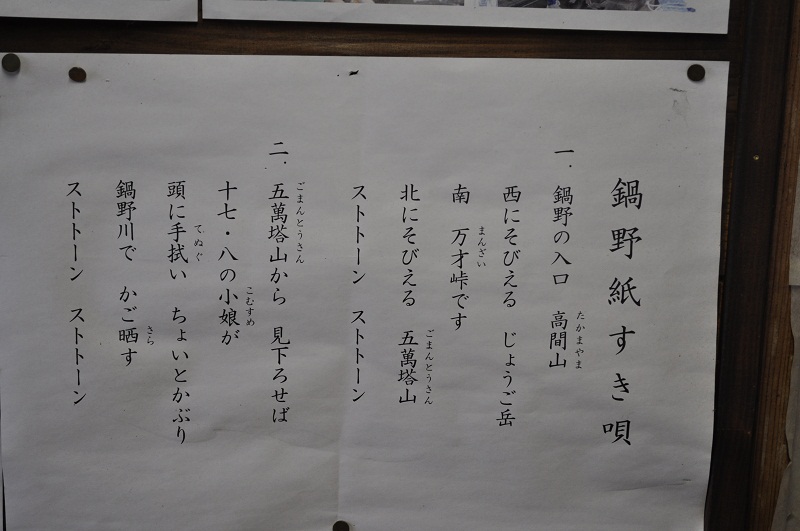 鍋野紙すき唄
一．鍋野の入口　高間山
たかまやま
西にそびえる　じょうご岳
南　万才峠です
まんざい
北にそびえる　五萬塔山
ごまんとうさん
ストトーン　ストトーン
二．五萬塔山から　見下ろせば
ごまんとうさん
十七・八の小娘が
こむすめ
頭に手拭い　ちょいとかぶり
てぬぐ
鍋野川で　かご晒す
さら
ストトーン　ストトーン